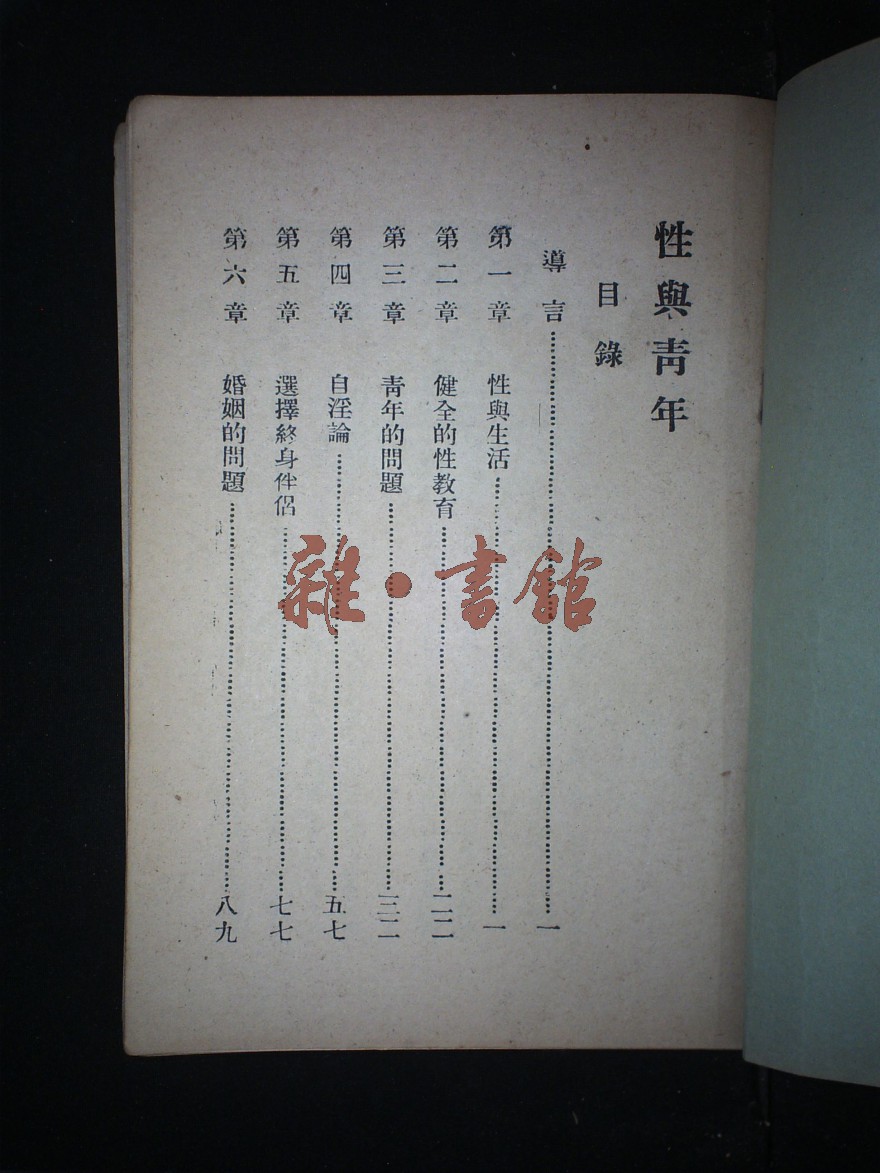 性與靑年
目錄
導言……一
第一章 性與生活……一
第二章 健全的性教育……二二
第三章 靑年的問題……三二
第四章 自淫論……五七
第五章 選擇終身伴侶……七七
第六章 婚姻的問題……八九
雜·書館